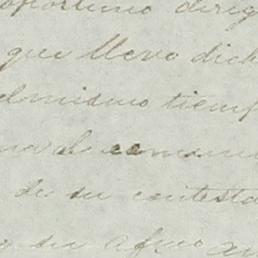 oportuno dirig
que llevo dich
al mismo tiemp
de su contesta
su afmo